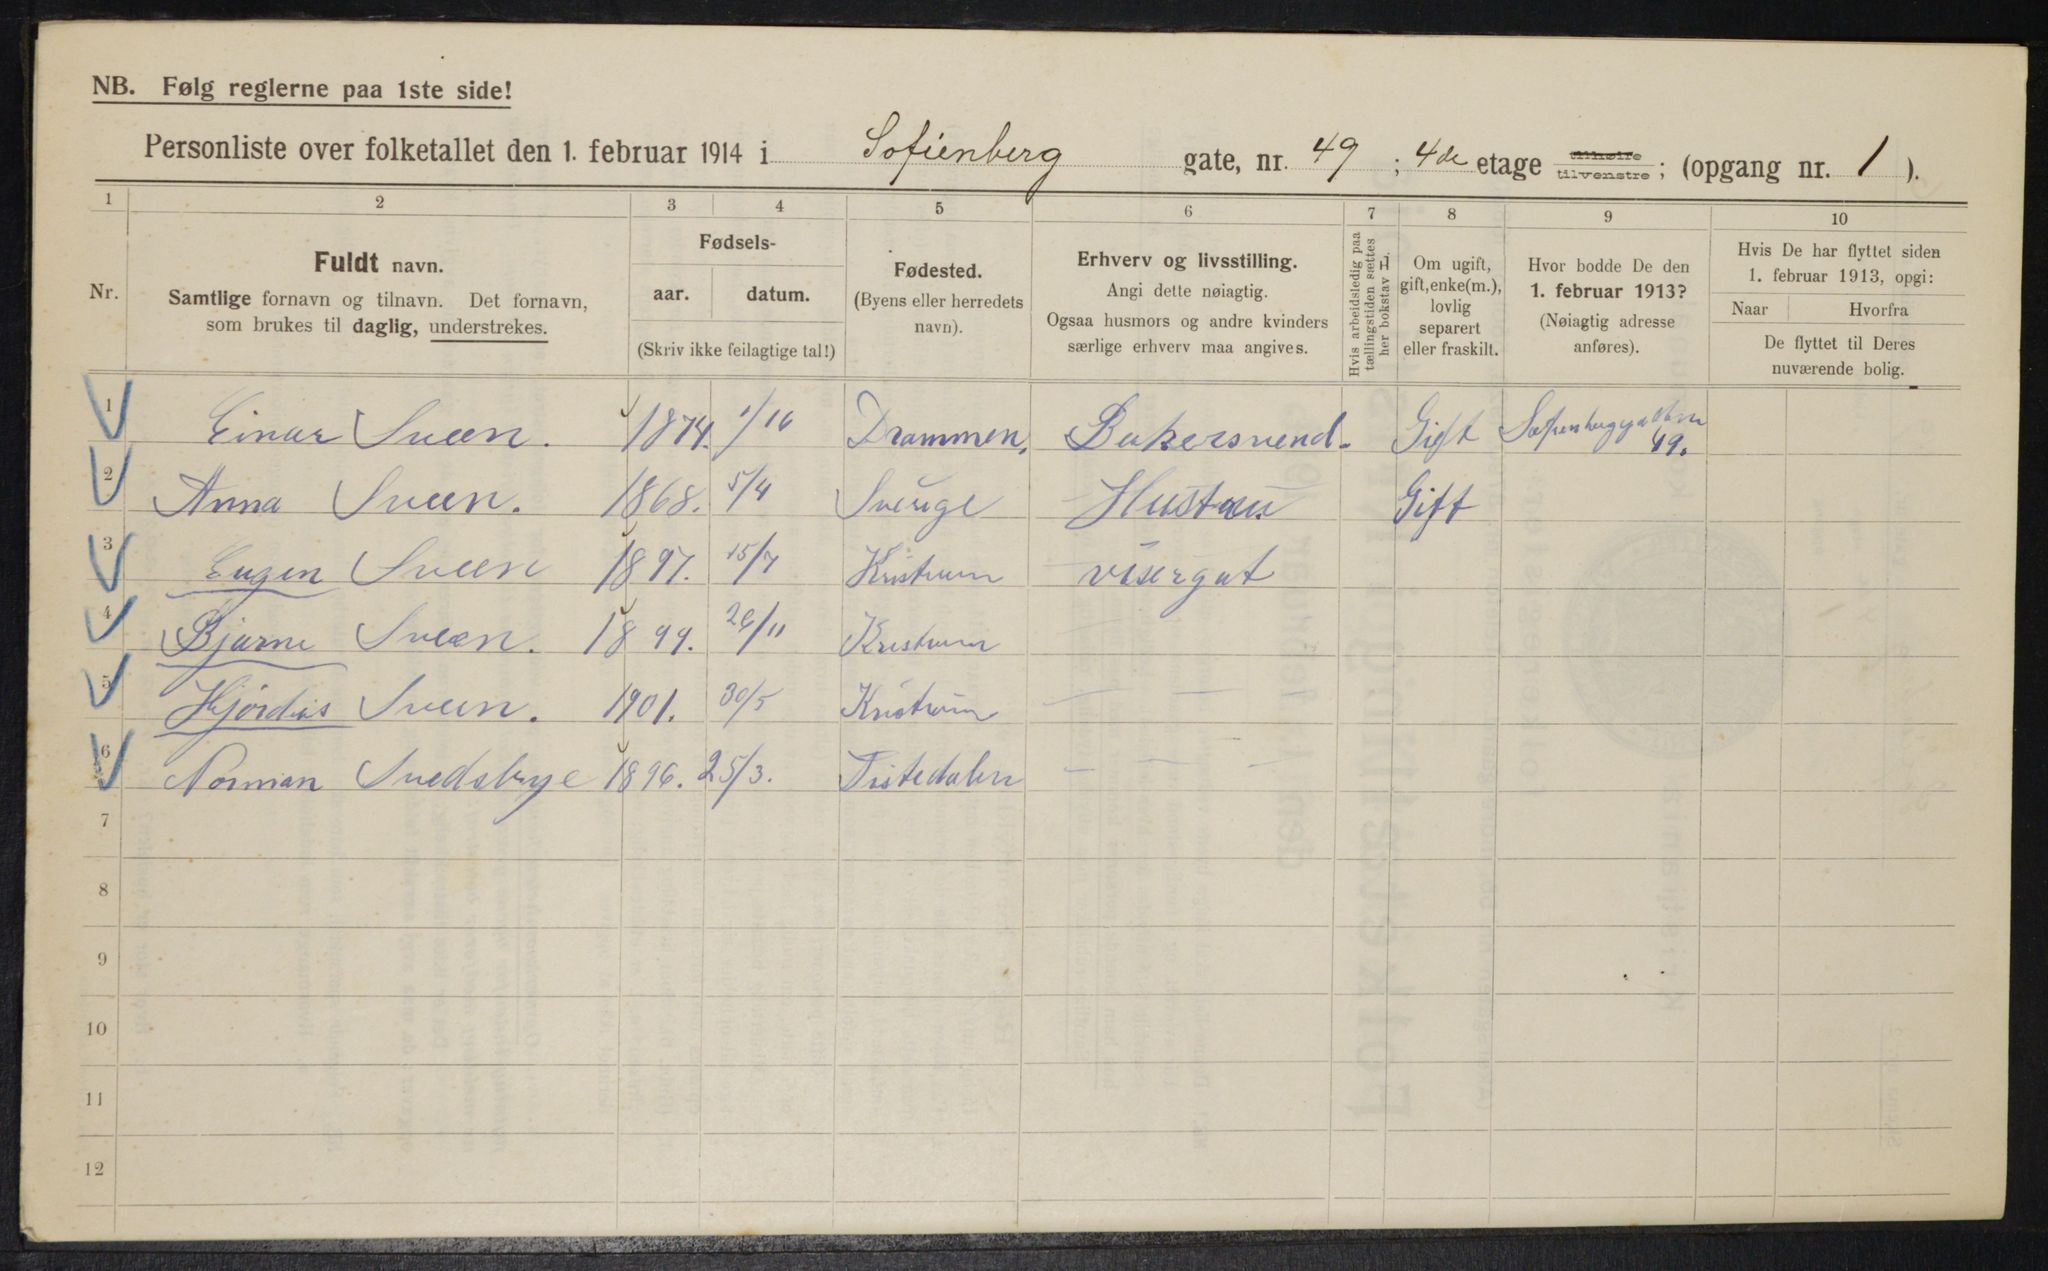 NB. Følg reglerne paa 1ste side!
Personliste over folketallet den 1. februar 1914 i Sofienberg gate, nr. 49 ; 4de etage tilhøire tilvenstre ; (opgang nr. 1 ).
1 2 3 4 5 6 7 8 9 10
Nr.
Fuldt navn.
Samtlige fornavn og tilnavn. Det fornavn,
som brukes til daglig, understrekes.
Fødsels-
aar. datum.
(Skriv ikke feilagtige tal!)
Fødested.
(Byens eller herredets
navn).
Erhverv og livsstilling.
Angi dette nøiagtig.
Ogsaa husmors og andre kvinders
særlige erhverv maa angives.
Hvis arbeidsledig paa
tællingstiden sættes
her bokstav H.
Om ugift,
gift, enke(m.),
lovlig
separert
eller fraskilt.
Hvor bodde De den
1. februar 1913?
(Nøiagtig adresse
anføres).
Hvis De har flyttet siden
1. februar 1913, opgi:
Naar Hvorfra
De flyttet til Deres
nuværende bolig.
1 Einar Sveen. 1874. 1/16 Drammen. Bakersvend. Gift 49.
2 Anna Sveen. 1868. 5/4 Sverige Gift
3 Eugen Sveen 1897. 15/7 Kristiania visergut
4 Bjarne Sveen. 1899. 26/11 Kristiania
5 Hjørdis Sveen. 1901. 30/5 Kristiania
6 Norman Svedsbye 1896. 25/3. Tistedalen
7
8
9
10
11
12